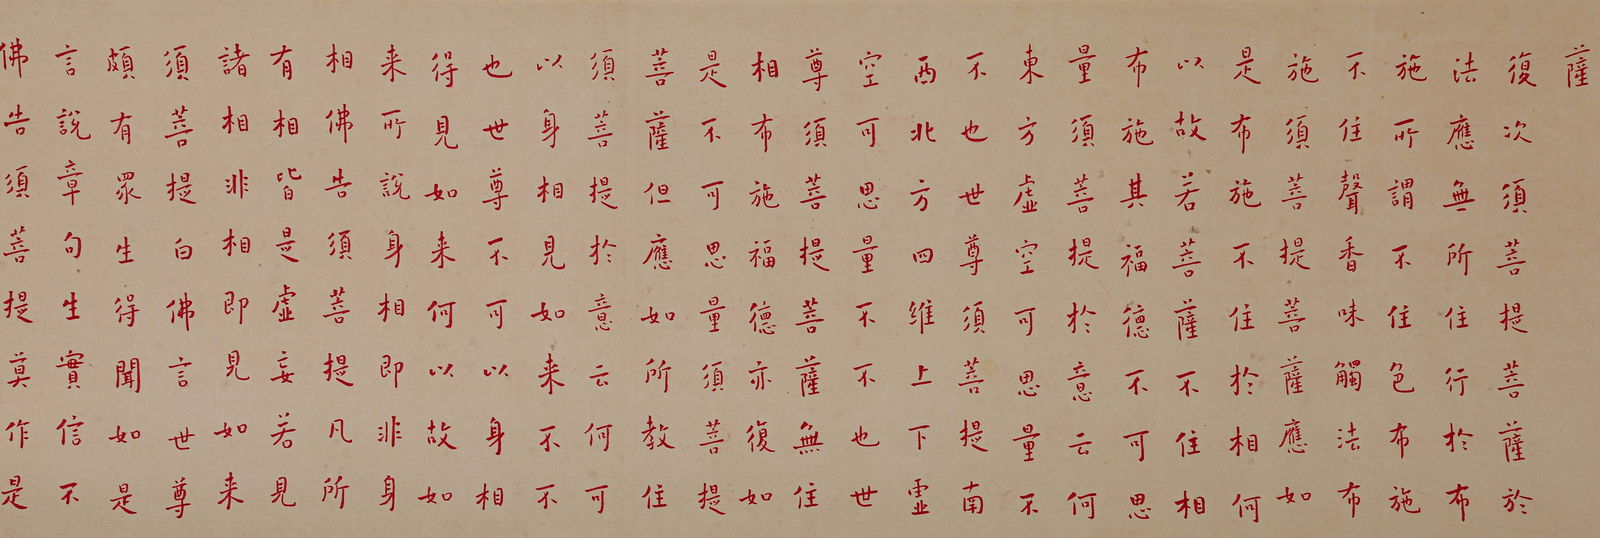 薩
復次須菩提菩薩於
法應無所住行於布
施所謂不住色布施
不住聲香味觸法布
施須菩提菩薩應如
是布施不住於相何
以故若菩薩不住相
布施其福德不可思
量須菩提於意云何
東方虛空可思量不
不也世尊須菩提南
西北方四維上下虛
空可思量不不也世
尊須菩提菩薩無住
相布施福德亦復如
是不可思量須菩提
菩薩但應如所教住
須菩提於意云何可
以身相見如来不不
也世尊不可以身相
得見如来何以故如
来所說身相即非身
相佛告須菩提凡所
有相皆是虛妄若見
諸相非相即見如来
須菩提白佛言世尊
頗有眾生得聞如是
言說章句生實信不
佛告須菩提莫作是